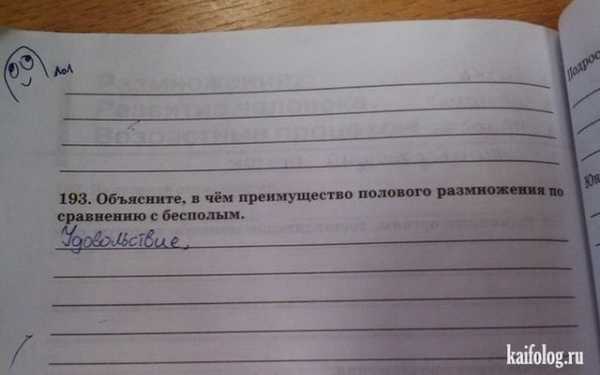 лол
193. Объясните, в чём преимущество полового размножения по
сравнению с бесполым.
Удовольствие,
Подрос
Юн
kaifolog.ru